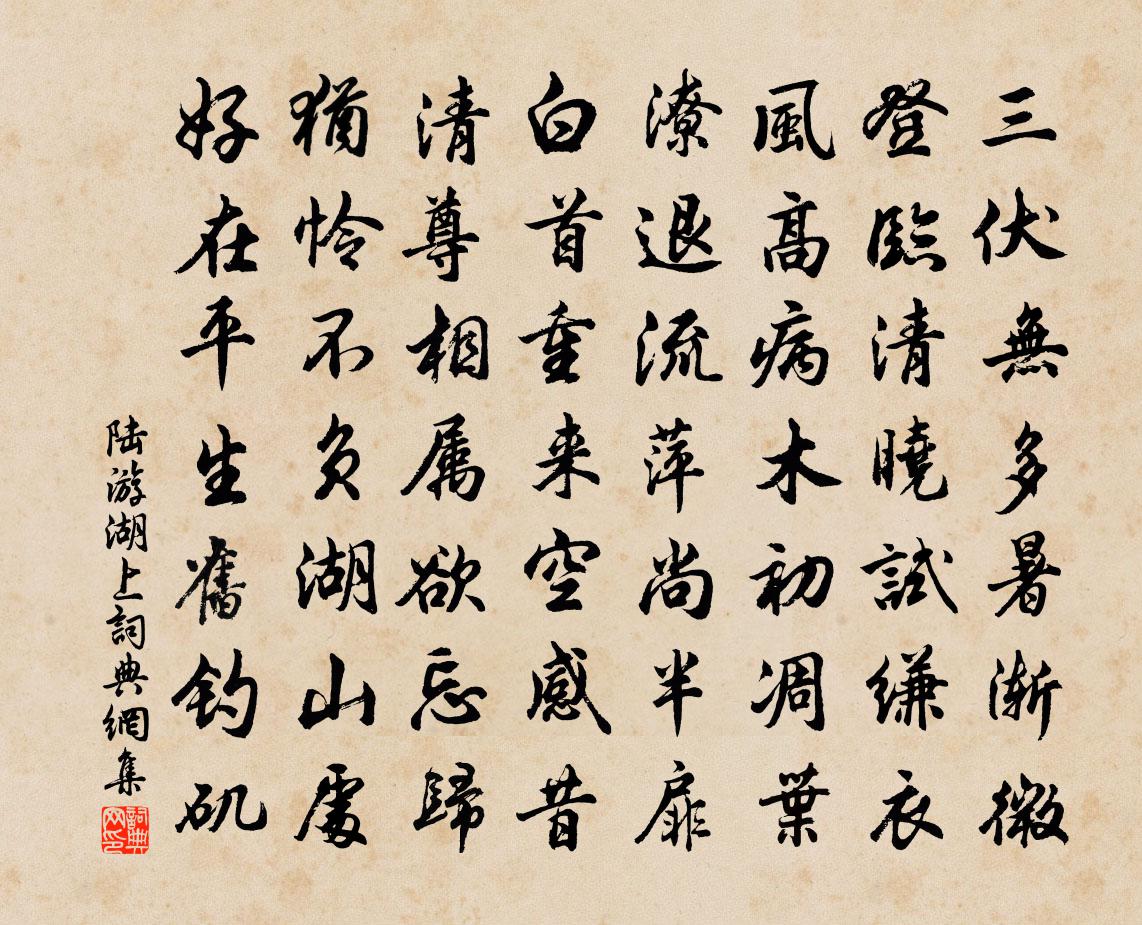 三伏無多暑漸微
登臨清曉試縑衣
風高病木初凋葉
潦退流萍尚半扉
白首重来空感昔
清尊相属欲忘歸
猶怜不负湖山處
好在平生舊钓矶
陆游湖上詞典網集
詞典网印